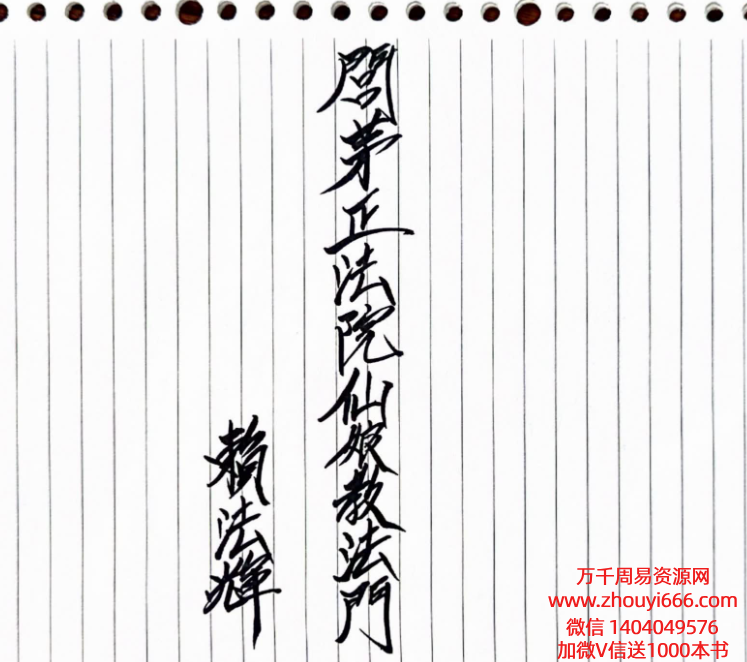 閭茅正法院仙娘教法門
賴法輝
万千周易资源网
www.zhouyi666.com
微信 1404049576
加微V信送1000本书